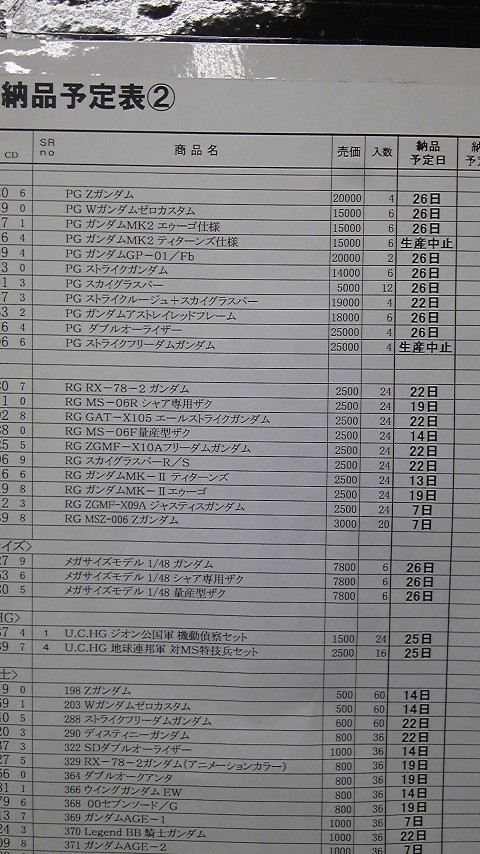 納品予定表②
CD SR no 商品名 売価 入数 納品予定日
0 6 PG Zガンダム 20000 4 26日
9 0 PG Wガンダムゼロカスタム 15000 6 26日
7 1 PG ガンダムMK2 エゥーゴ仕様 15000 6 26日
6 4 PG ガンダムMK2 ティターンズ仕様 15000 6 生産中止
9 4 PG ガンダムGP-01/Fb 20000 2 26日
3 0 PG ストライクガンダム 14000 6 26日
1 3 PG スカイグラスパー 5000 12 26日
7 3 PG ストライクルージュ+スカイグラスパー 19000 4 22日
3 2 PG ガンダムアストレイレッドフレーム 18000 6 26日
6 4 PG ダブルオーライザー 25000 4 26日
06 6 PG ストライクフリーダムガンダム 25000 4 生産中止
20 7 RG RX-78-2 ガンダム 2500 24 22日
1 0 RG MS-06R シャア専用ザク 2500 24 19日
02 8 RG GAT-X105 エールストライクガンダム 2500 24 22日
38 0 RG MS-06F量産型ザク 2500 24 14日
25 5 RG ZGMF-X10Aフリーダムガンダム 2500 24 22日
06 9 RG スカイグラスパーR/S 2500 24 22日
6 6 RG ガンダムMK-Ⅱ ティターンズ 2500 24 13日
9 8 RG ガンダムMK-Ⅱエゥーゴ 2500 24 19日
2 3 RG ZGMF-X09A ジャスティスガンダム 2500 24 7日
39 8 RG MSZ-006 Zガンダム 3000 20 7日
イズ〉
27 9 メガサイズモデル 1/48 ガンダム 7800 6 26日
63 6 メガサイズモデル 1/48 シャア専用ザク 7800 6 26日
30 5 メガサイズモデル 1/48 量産型ザク 7800 6 26日
HG〉
37 4 1 U.C.HG ジオン公国軍 機動偵察セット 1500 24 25日
39 7 4 U.C.HG 地球連邦軍 対MS特技兵セット 2500 16 25日
士〉
9 0 198 Zガンダム 500 60 14日
69 1 203 Wガンダムゼロカスタム 500 60 14日
10 5 288 ストライクフリーダムガンダム 600 60 22日
20 3 290 ディスティニーガンダム 800 36 22日
37 3 322 SDダブルオーライザー 1000 36 14日
27 5 329 RX-78-2ガンダム(アニメーションカラー) 800 36 19日
56 0 364 ダブルオークアンタ 800 36 19日
31 1 366 ウイングガンダム EW 800 36 14日
79 6 368 00セブンソード/G 800 36 19日
13 7 369 ガンダムAGE-1 1000 36 7日
24 3 370 Legend BB 騎士ガンダム 1000 36 22日
09 8 371 ガンダムAGE-2 1000 36 7日